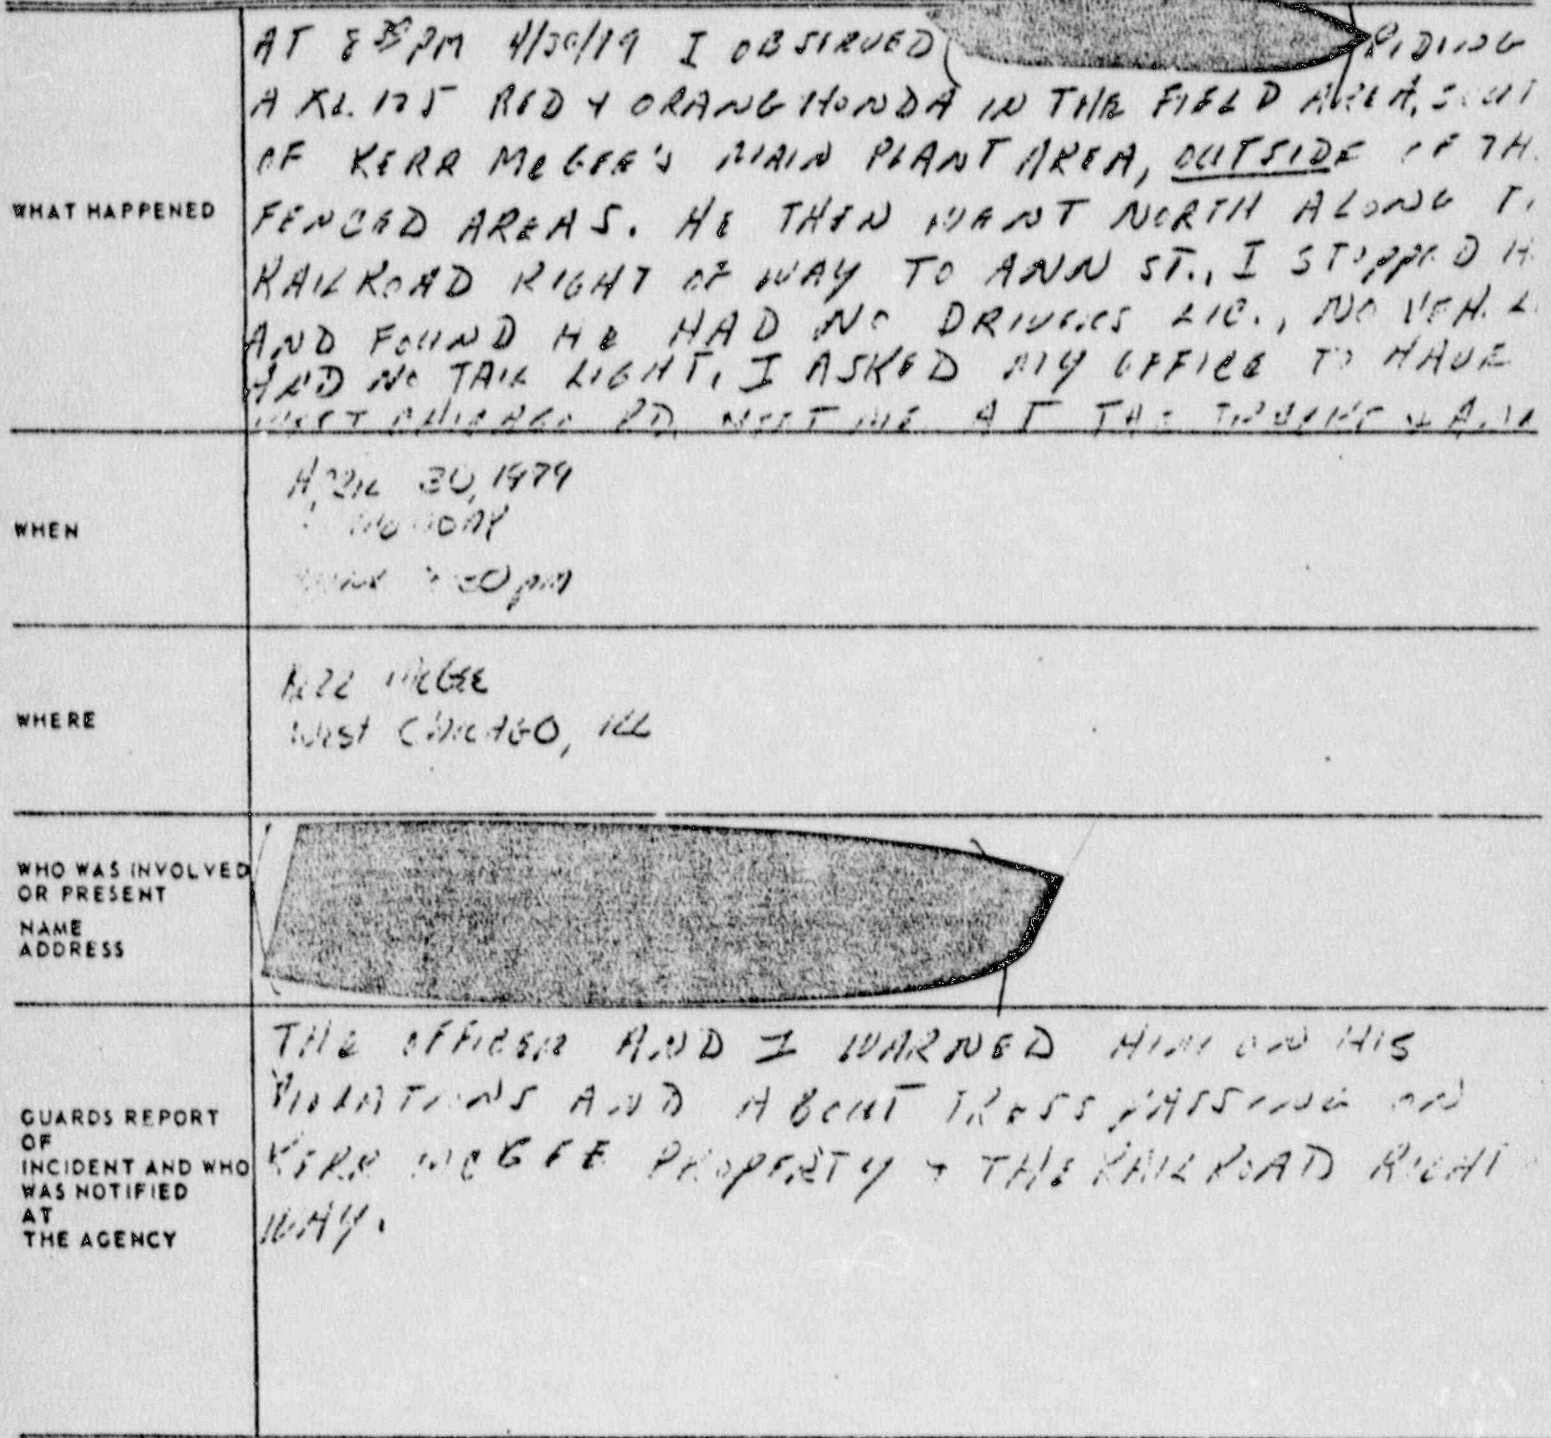 AT 8 PM 4/30/79 I OBSERVED RIDING
WHAT HAPPENED
A XL 175 RED & ORANG HONDA IN THE FIELD AREA,
OF KERR McGEE'S MAIN PLANT AREA, OUTSIDE OF TH
FENCED AREAS. HE THEN WENT NORTH ALONG T
RAILROAD RIGHT OF WAY TO ANN ST., I STOPPED H
AND FOUND HE HAD NO DRIVERS LIC., NO VEH. L
AND NO TAIL LIGHT, I ASKED MY OFFICE TO HAVE
WEST CHICAGO PD MEET ME AT THE
WHEN
APRIL 30, 1979
MONDAY
pm
WHERE
KERR McGEE
WEST CHICAGO, ILL
WHO WAS INVOLVED
OR PRESENT
NAME
ADDRESS
GUARDS REPORT
OF
INCIDENT AND WHO
WAS NOTIFIED
AT
THE AGENCY
THE OFFICER AND I WARNED HIM ON HIS
VIOLATIONS AND ABOUT TRESSPASSING ON
KERR McGEE PROPERTY & THE RAILROAD RIGHT
WAY.